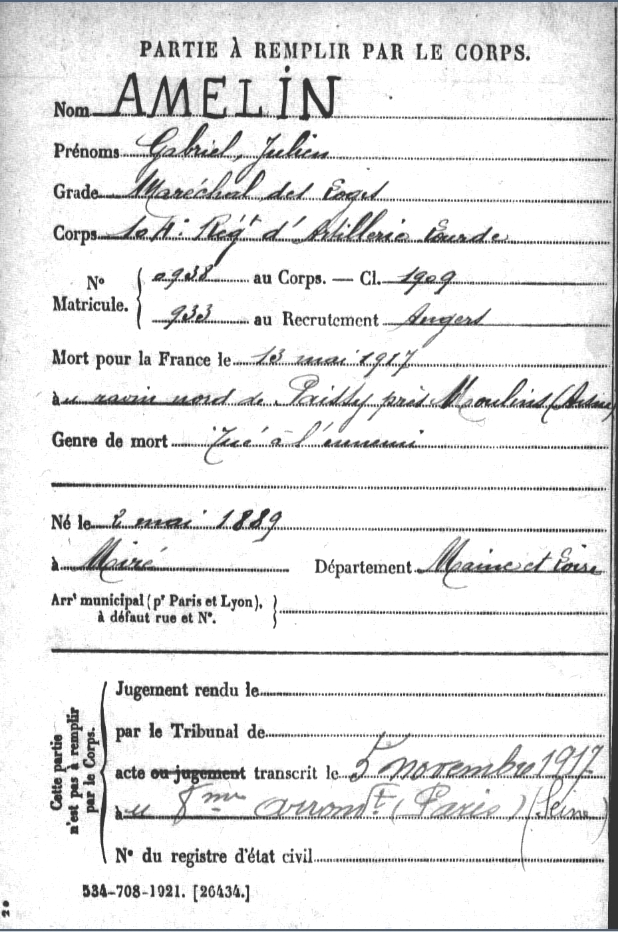 PARTIE À REMPLIR PAR LE CORPS.
Nom AMELIN
Prénoms Gabriel, Julien
Grade Maréchal des Logis
Corps Régt d'Artillerie Lourde
No Matricule. { 0938 au Corps. — Cl. 1909
933 au Recrutement Angers
Mort pour la France le 13 mai 1917
au ravin nord de Paissy près Moulins (Aisne)
Genre de mort Tué à l'ennemi
Né le 2 mai 1889
à Miré Département Maine et Loire
Arrt municipal (pr Paris et Lyon),
à défaut rue et No.
Cette partie n'est pas à remplir par le Corps.
Jugement rendu le
par le Tribunal de
acte ou jugement transcrit le 5 novembre 1917
au 8me arrondt (Paris) (Seine)
No du registre d'état civil
534-708-1921. [26434.]